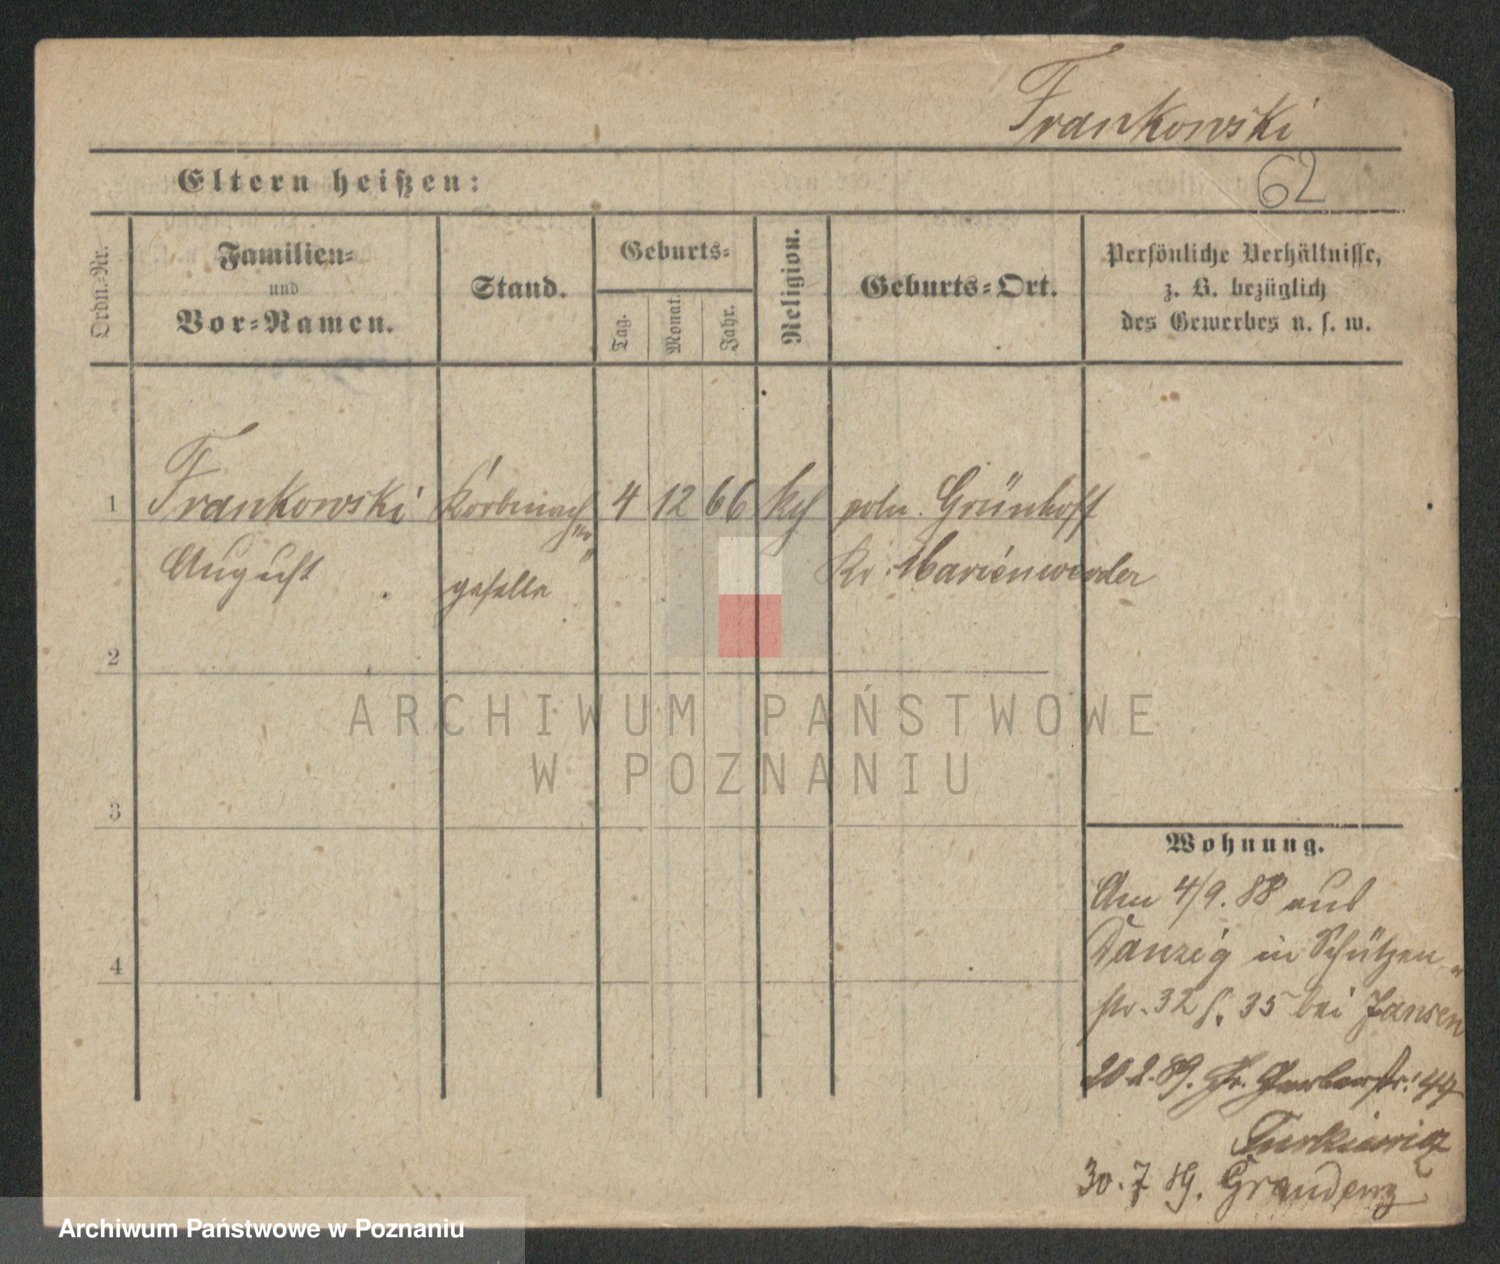 Frankowski
62
Eltern heißen:
Ordn.-Nr.
Familien-
und
Vor-Namen.
Stand.
Geburts-
Tag.
Monat.
Jahr.
Religion.
Geburts-Ort.
Persönliche Verhältnisse,
z. B. bezüglich
des Gewerbes u. s. w.
1 Frankowski Korbmach 4 12 66 kth poln. Grünhoff
er"
August geselle Kr. Marienwerder
2
3
4
Wohnung.
Am 4/9. 88 aus
Danzig in Schützen-
str. 32 35 bei Jansen
20.2.89. Gr. Gerberstr. 44
Turkiewicz
30.7 89. Graudenz
ARCHIWUM PAŃSTWOWE
W POZNANIU
Archiwum Państwowe w Poznaniu